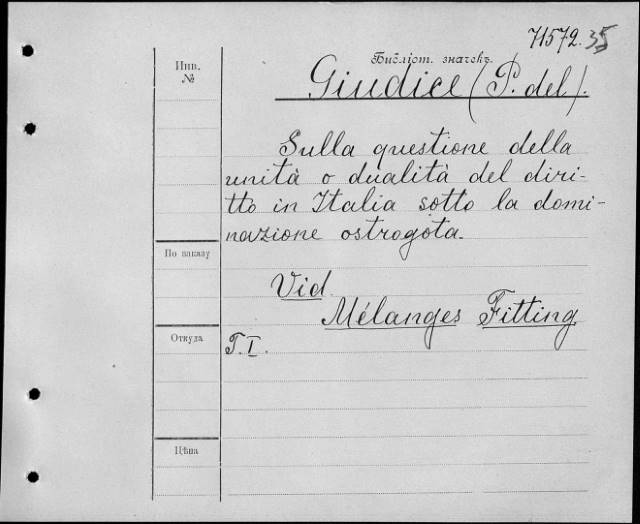 71572.35
Библіот. значекъ.
Инв.
№
Giudice (P. del).
Sulla questione della
unità o dualità del diri-
tto in Italia sotto la domi-
nazione ostrogota.
По заказу
Vid
Mélanges Fitting
Откуда
T. I.
Цѣна